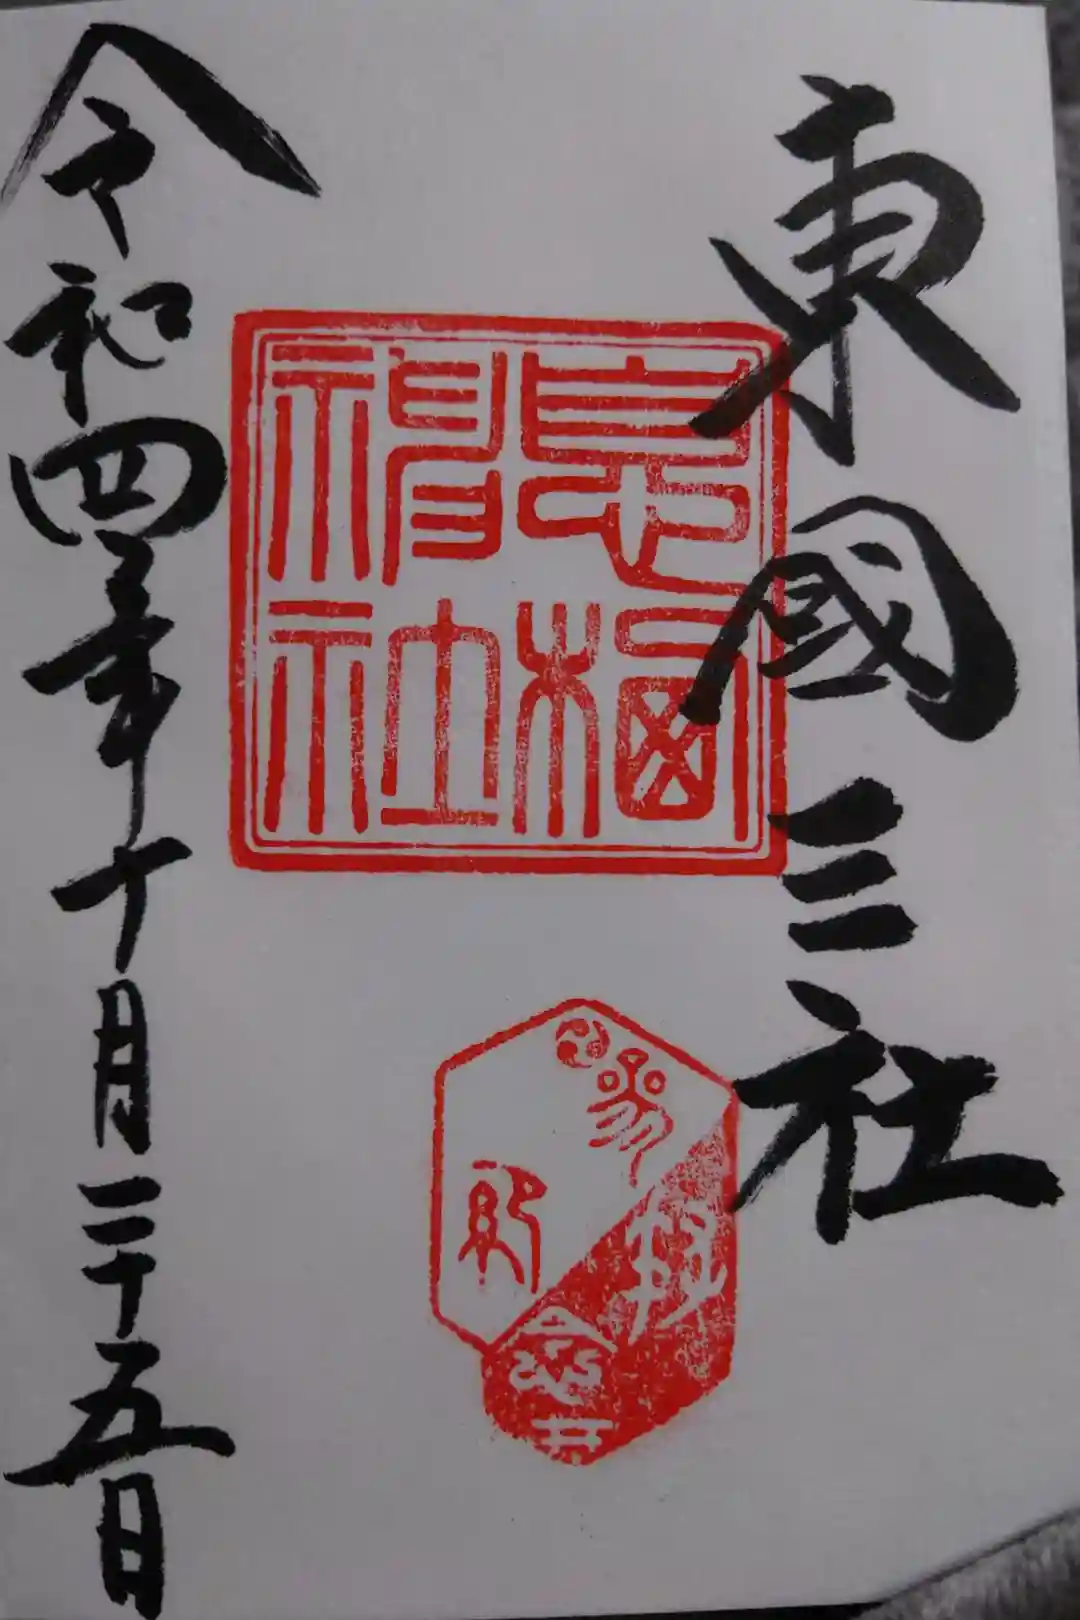 東國三社
息栖
神社
参拝
令和四年十月二十五日